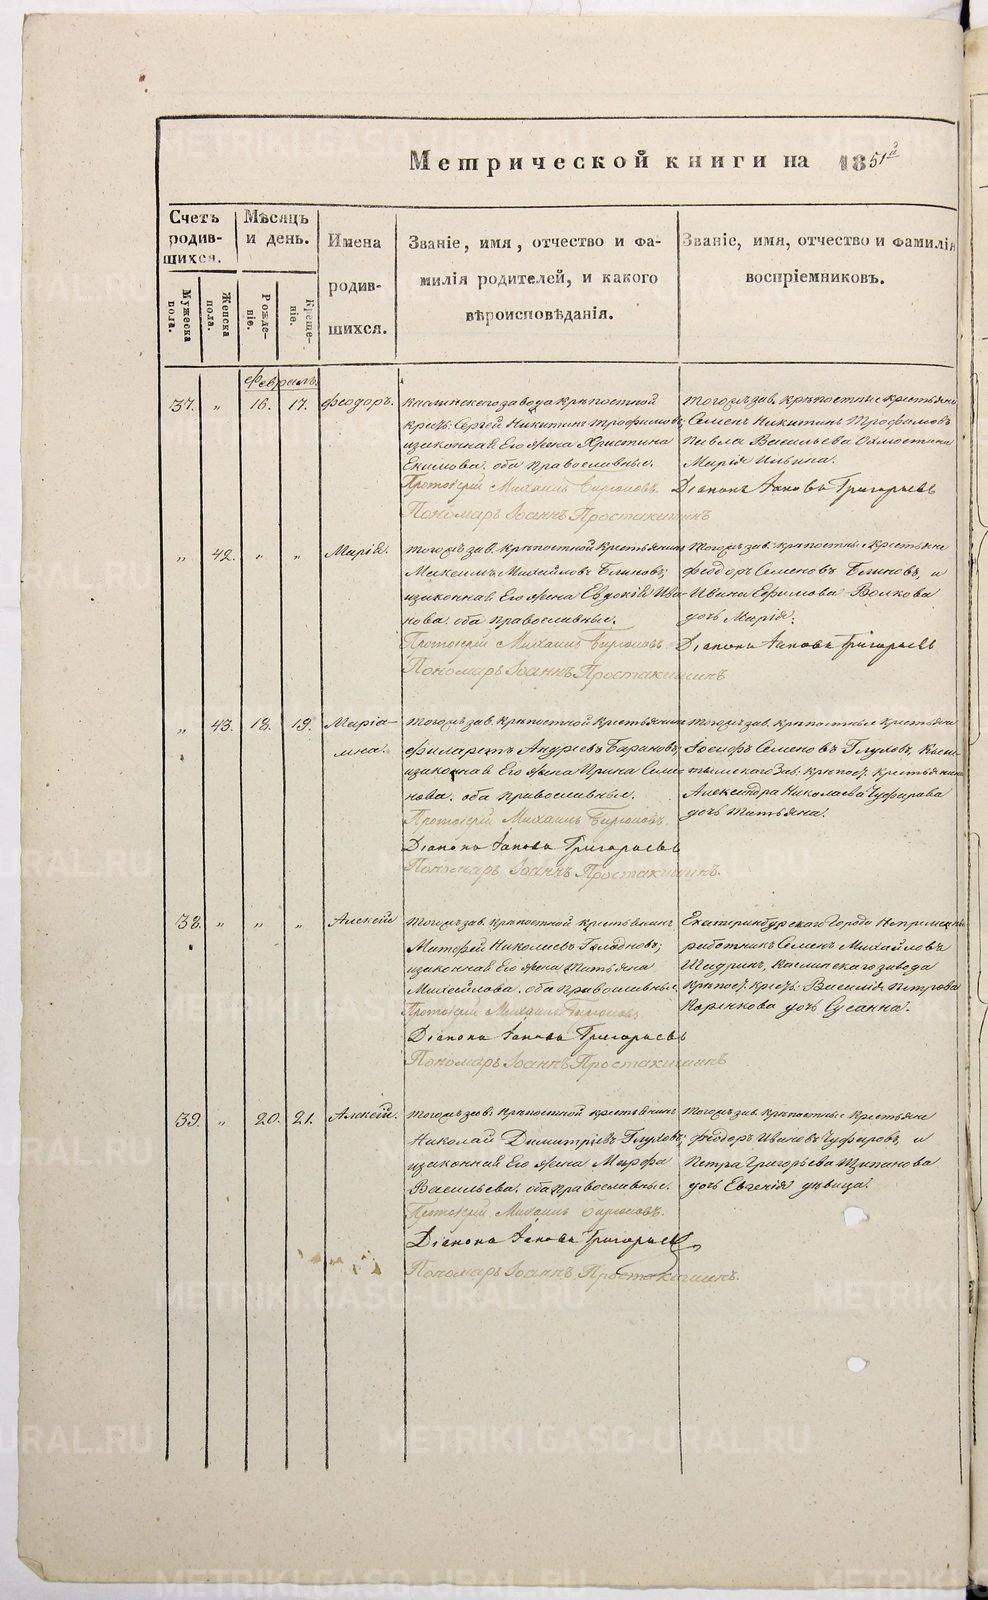 Метрической книги на 1851й
Счетъ родив-шихся.
Мѣсяцъ и день.
Имена родив-шихся.
Званіе, имя, отчество и фа-
милія родителей, и какого
вѣроисповѣданія.
Званіе, имя, отчество и фамилія
воспріемниковъ.
Мужеска пола.
Женска пола.
Рожде-ніе.
Креще-ніе.
Февраль.
37. „ 16. 17. Феодоръ.
Каслинскаго завода крѣпостной
крест: Сергей Никитинъ Трофимовъ;
изаконная Его жена Христина
Екимова. оба православные.
Протоіерей Михаилъ Бирюковъ.
Пономарь Іоаннъ Простакишинъ
Тогожъ зав. крѣпостные крестьяне
Семенъ Никитинъ Трофимовъ
Павла Васильева
Марія Ильина.
Діаконъ Іаковъ Григорьевъ
„ 42. „ „ Марія.
Тогожъ зав. крѣпостной крестьянинъ
Максимъ Михайловъ Блиновъ;
изаконная Его жена Евдокія Ива-
нова. оба православные.
Протоіерей Михаилъ Бирюковъ.
Пономарь Іоаннъ Простакишинъ
Тогожъ зав. крѣпостные крестьяне
Феодоръ Семеновъ Блиновъ, и
Ивана Ефимова Волкова
дочь Марія.
Діаконъ Іаковъ Григорьевъ
„ 43. 18. 19. Маріа-
мна.
Тогожъ зав. крѣпостной крестьянинъ
Филаретъ Андреевъ Барановъ;
изаконная Его жена Ирина Семе-
нова. оба православные.
Протоіерей Михаилъ Бирюковъ.
Діаконъ Іаковъ Григорьевъ
Пономарь Іоаннъ Простакишинъ.
Тогожъ зав. крѣпостные крестьяне
Іосифъ Семеновъ Глуховъ, Кыш-
тымскаго Зав: крѣпост. крестьянина
Александра Николаева Чуфарова
дочь Татьяна.
38. „ „ „ Алексѣй
Тогожъ зав. крѣпостной крестьянинъ
Матфей Николаевъ Голодновъ;
изаконная Его жена Татьяна
Михайлова. оба православные.
Протоіерей Михаилъ Бирюковъ.
Діаконъ Іаковъ Григорьевъ
Пономарь Іоаннъ Простакишинъ
Екатеринбургскаго Города
работникъ Семенъ Михайловъ
Шадринъ, Каслинскаго завода
крѣпост. крест: Василія Петрова
дочь Сусанна.
39. „ 20. 21. Алексѣй.
Тогожъ зав: крѣпостной крестьянинъ
Николай Димитріевъ Глуховъ;
изаконная Его жена Марфа
Васильева. оба православные.
Протоіерей Михаилъ Бирюковъ.
Діаконъ Іаковъ Григорьевъ
Пономарь Іоаннъ Простакишинъ.
Тогожъ зав. крѣпостные крестьяне
Феодоръ Ивановъ Чуфаровъ, и
Петра Григорьева Щипанова
дочь Евгенія дѣвица.
METRIKI.GASO-URAL.RU